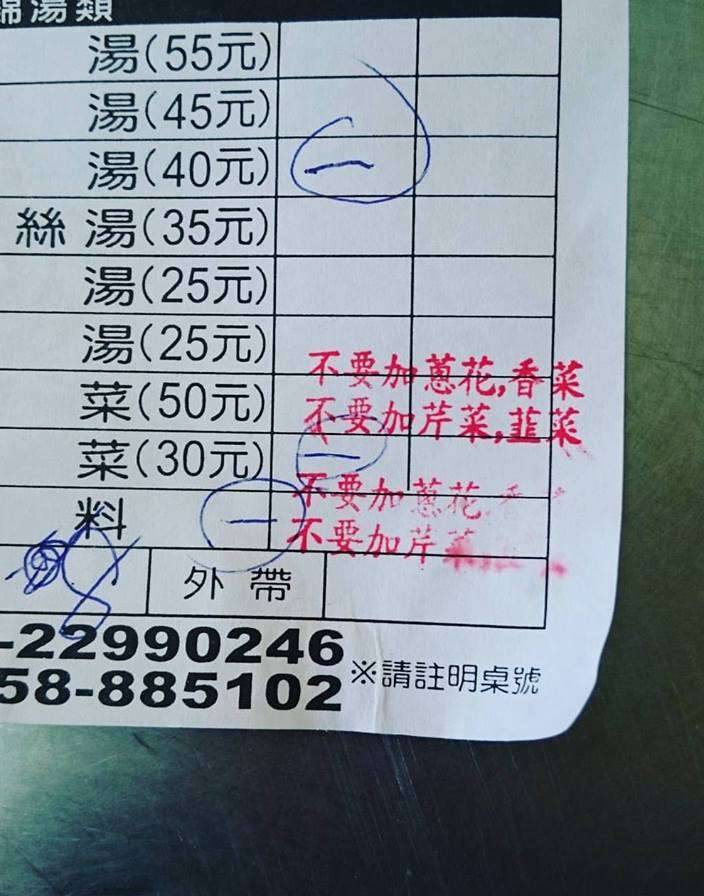 湯類
湯(55元)
湯(45元)
湯(40元) 一
絲湯(35元)
湯(25元)
湯(25元)
不要加蔥花,香菜
菜(50元)
不要加芹菜,韭菜
菜(30元) 一
不要加蔥花,香
料 一
不要加芹菜
外帶
-22990246
58-885102
※請註明桌號